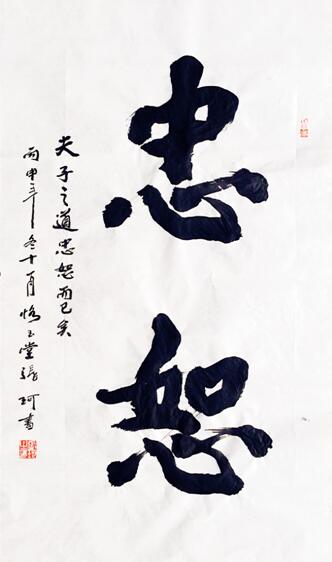 忠恕
夫子之道忠恕而已矣
丙申年冬十一月悟玉堂张珂书